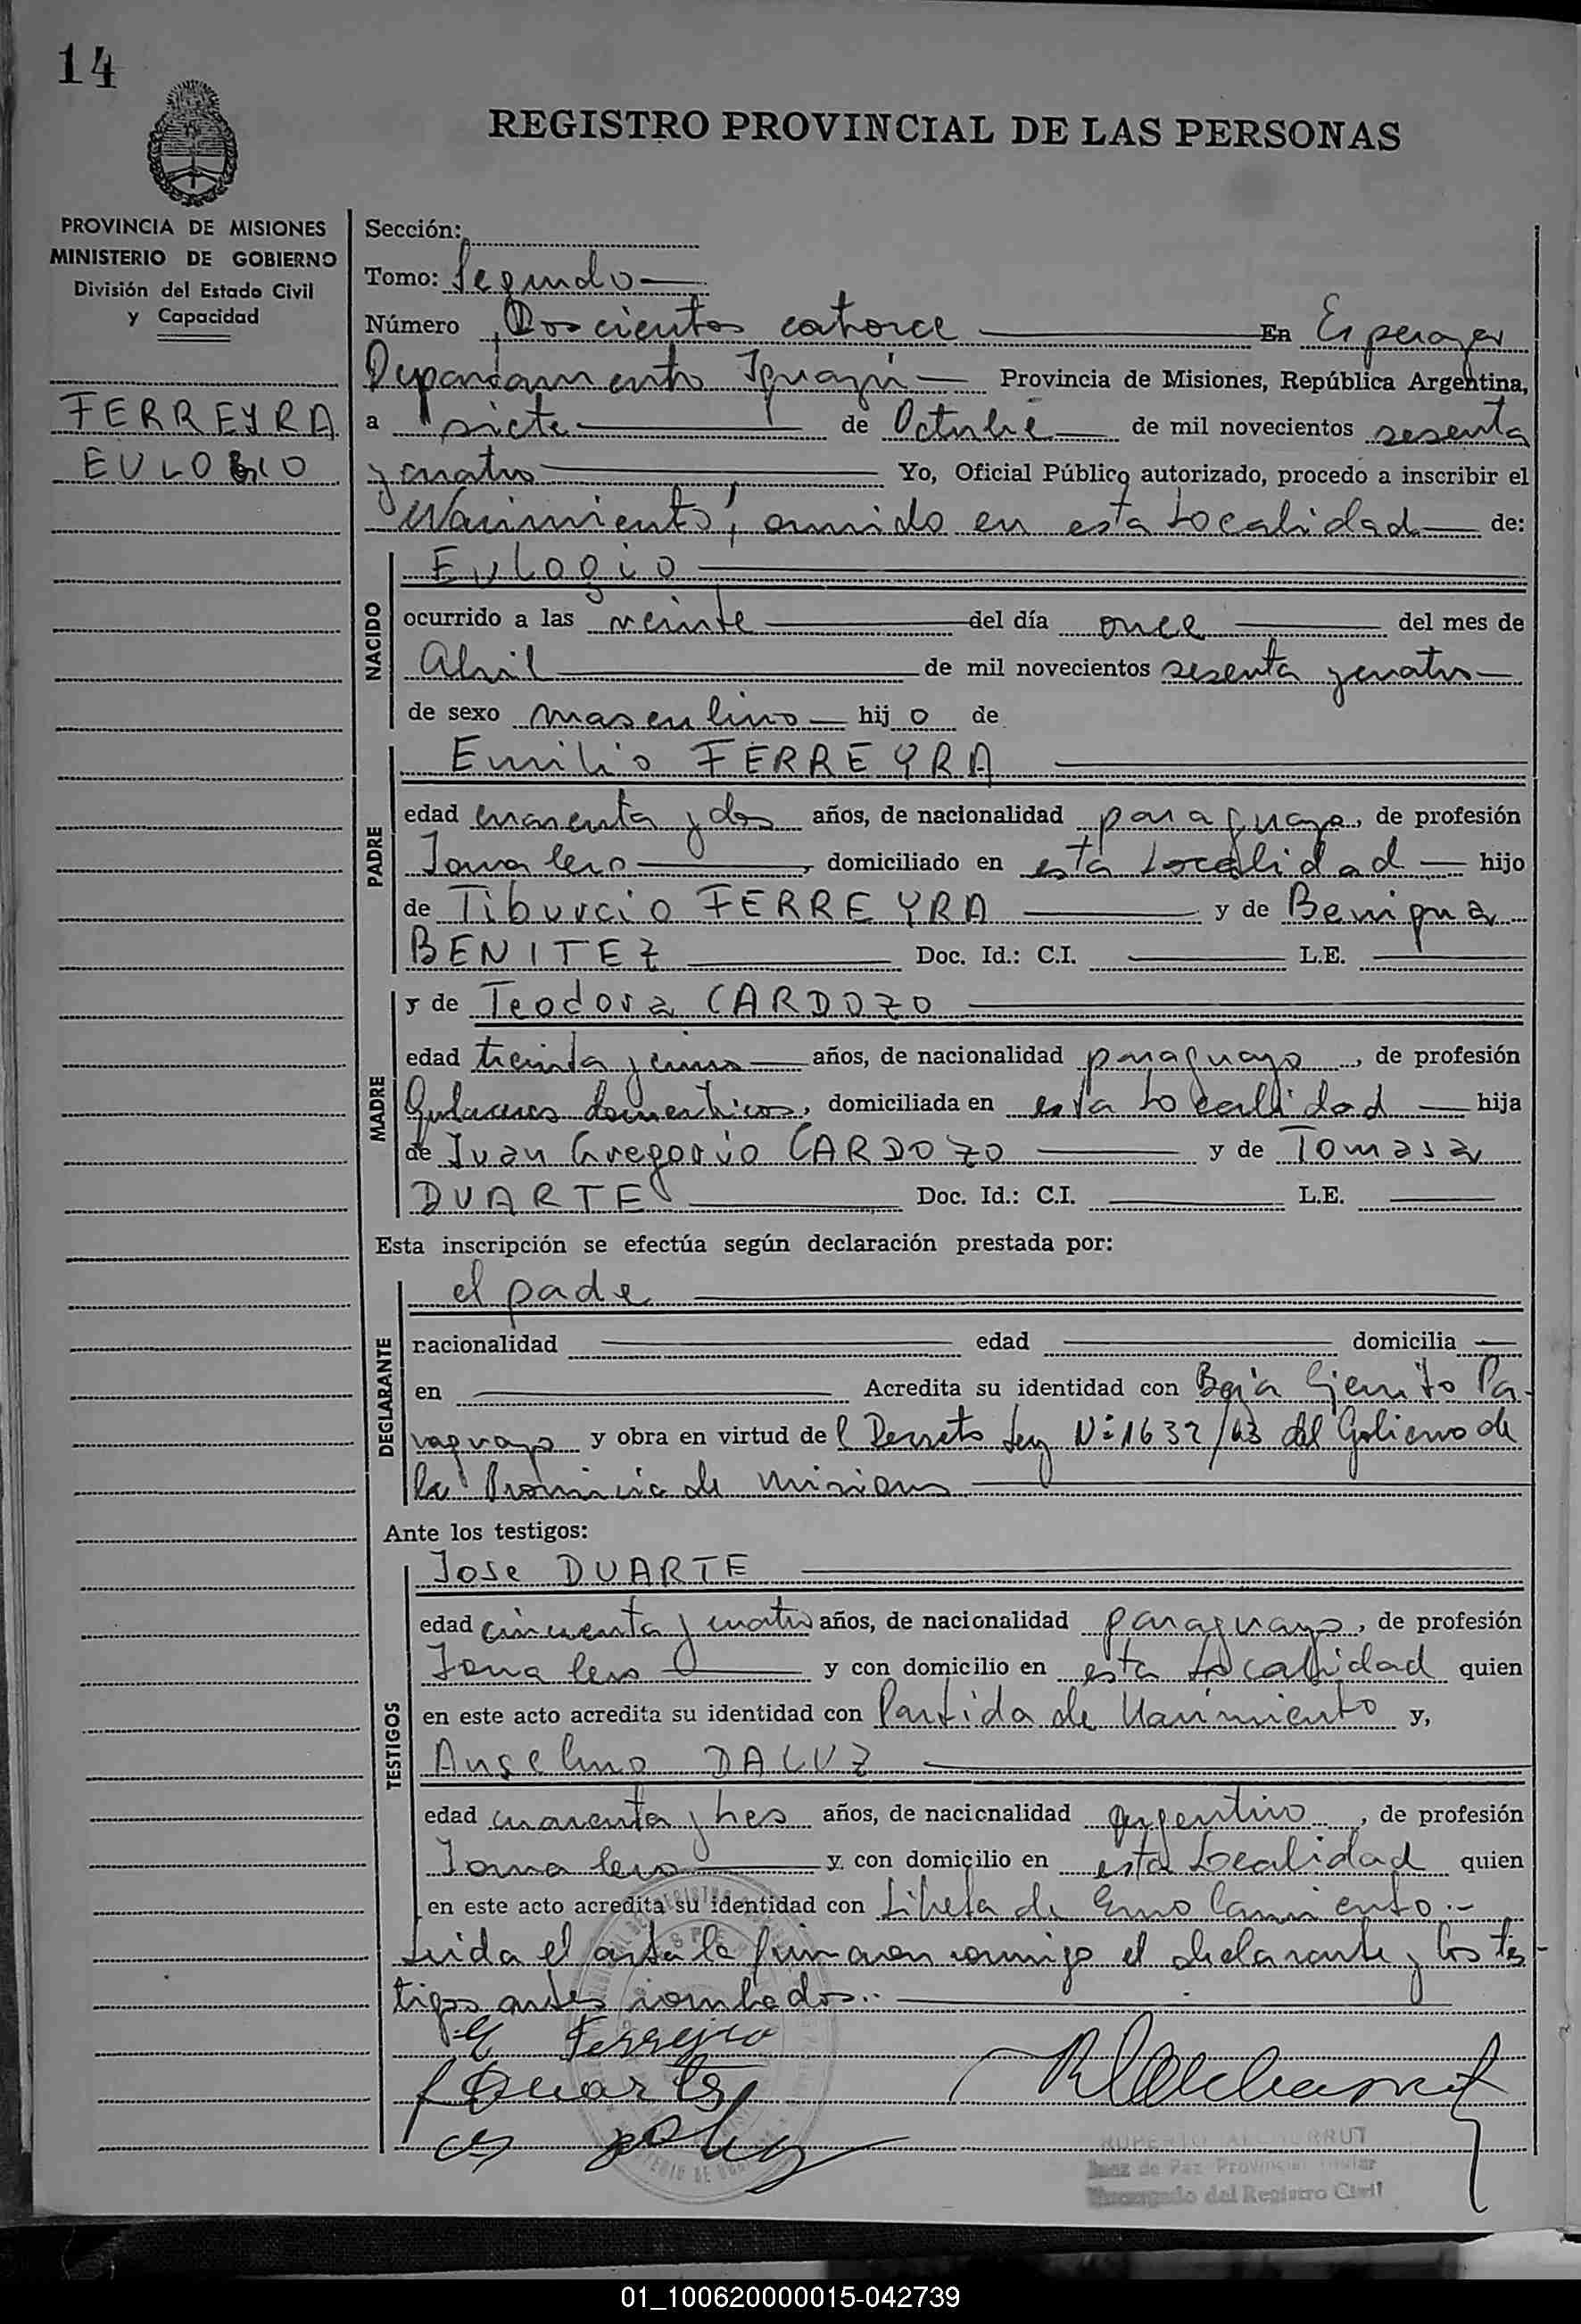 14
REGISTRO PROVINCIAL DE LAS PERSONAS
PROVINCIA DE MISIONES
MINISTERIO DE GOBIERNO
División del Estado Civil
y Capacidad
FERREYRA
EULOGIO
Sección:
Tomo: Segundo
Número Doscientos catorce En Esperanza
Departamento Iguazú Provincia de Misiones, República Argentina,
a siete de Octubre de mil novecientos sesenta
y cuatro Yo, Oficial Público autorizado, procedo a inscribir el
Nacimiento, ocurrido en esta Localidad de:
NACIDO
Eulogio
ocurrido a las veinte del día once del mes de
Abril de mil novecientos sesenta y cuatro
de sexo masculino hijo de
PADRE
Emilio FERREYRA
edad cuarenta y dos años, de nacionalidad paraguaya, de profesión
Jornalero, domiciliado en esta Localidad hijo
de Tiburcio FERREYRA y de Benigna
BENITEZ Doc. Id.: C.I. L.E.
MADRE
y de Teodora CARDOZO
edad treinta y cinco años, de nacionalidad paraguaya, de profesión
Quehaceres domesticos, domiciliada en esta Localidad hija
de Juan Gregorio CARDOZO y de Tomasa
DUARTE Doc. Id.: C.I. L.E.
Esta inscripción se efectúa según declaración prestada por:
DECLARANTE
el padre
nacionalidad edad domicilia
en Acredita su identidad con Baja Ejercito Pa-
raguayo y obra en virtud del Decreto Ley Nº 1632/63 del Gobierno de
la Provincia de Misiones
Ante los testigos:
TESTIGOS
Jose DUARTE
edad cincuenta y cuatro años, de nacionalidad paraguayo, de profesión
Jornalero y con domicilio en esta Localidad quien
en este acto acredita su identidad con Partida de Nacimiento y,
Anselmo DALUZ
edad cuarenta y tres años, de nacionalidad argentino, de profesión
Jornalero y con domicilio en esta Localidad quien
en este acto acredita su identidad con Libreta de Enrolamiento.-
Leida el acta la firman conmigo el declarante y los tes-
tigos antes nombrados..
E Ferreira
J Duarte
Juez de Paz Provincial Titular
Encargado del Registro Civil
01_100620000015-042739